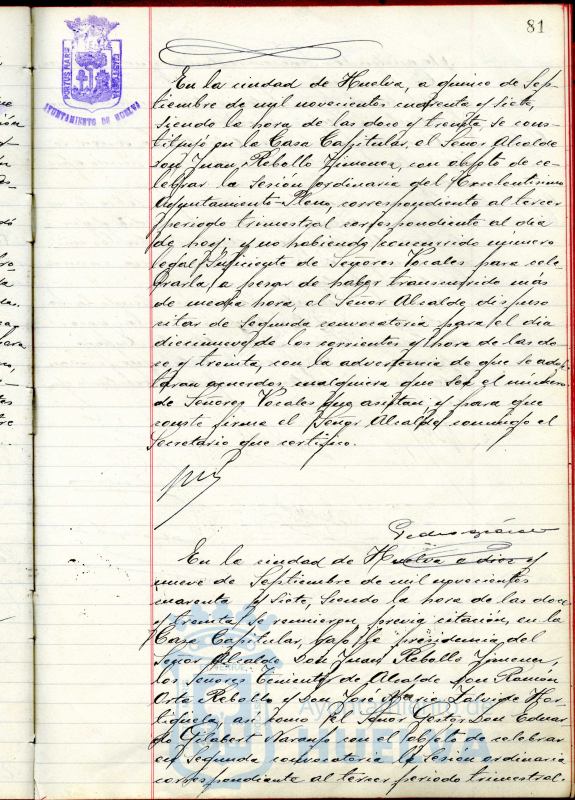 81
PORTUS MARIS
CUSTODIA
AYUNTAMIENTO DE HUELVA
En la ciudad de Huelva, a quince de Sep-
tiembre de mil novecientos cuarenta y siete,
siendo la hora de las doce y treinta, se cons-
tituyó en la Casa Capitular, el Señor Alcalde
Don Juan Rebollo Jimenez, con objeto de ce-
lebrar la sesión ordinaria del Excelentísimo
Ayuntamiento Pleno, correspondiente al tercer
periodo trimestral correspondiente al día
de hoy; y no habiendo concurrido número
legal suficiente de Señores Vocales para cele-
brarla, a pesar de haber transcurrido más
de media hora, el Señor Alcalde dispuso
citar de segunda convocatoria para el día
diecinueve de los corrientes y hora de las do-
ce y treinta, con la advertencia de que se adop-
tarán acuerdos cualquiera que sea el número
de Señores Vocales que asistan, y para que
conste firma el Señor Alcalde conmigo el
Secretario que certifico.
En la ciudad de Huelva a diez y
nueve de Septiembre de mil novecientos
cuarenta y siete, siendo la hora de las doce
y treinta, se reunieron, previa citación, en la
Casa Capitular, bajo la presidencia del
Señor Alcalde Don Juan Rebollo Jimenez,
los Señores Tenientes de Alcalde Don Ramón
Orta Rebollo y Don José María
así como el Señor Gestor Don Eduar-
do Gilabert Naranjo con el objeto de celebrar
en segunda convocatoria la sesión ordinaria
correspondiente al tercer periodo trimestral.
Ayuntamiento de
HUELVA